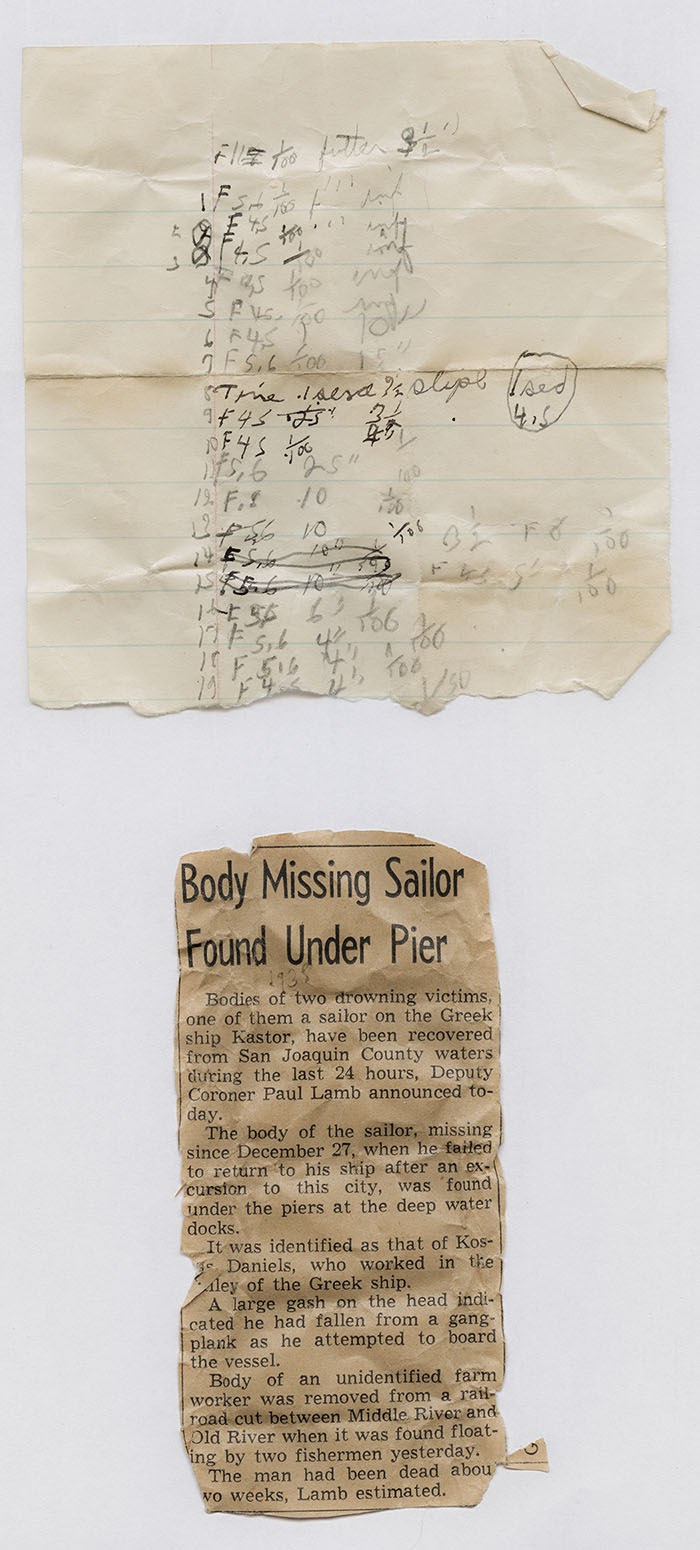 1 F 5.6 1/100
F 4.5 1/100
3 F 4.5 1/100
4
5 F 4.5 1/100
6 F 4.5
7 F 5.6 1/100
8 Time
1 sed
4.5
9 F 4.5
10 F 4.5 1/100
11 F 5.6 25" 1/100
12 F.8 10 1/100
13 F 5.6 10 1/100
14 F 5.6
15 F 5.6 10"
16 6" 1/100
17 F 5.6 4" 1/100
18 F 5.6 4" 1/100
19 F 4.5 4" 1/50
Body Missing Sailor
Found Under Pier
Bodies of two drowning victims,
one of them a sailor on the Greek
ship Kastor, have been recovered
from San Joaquin County waters
during the last 24 hours, Deputy
Coroner Paul Lamb announced to-
day.
The body of the sailor, missing
since December 27, when he failed
to return to his ship after an ex-
cursion to this city, was found
under the piers at the deep water
docks.
It was identified as that of Kos-
Daniels, who worked in the
of the Greek ship.
A large gash on the head indi-
cated he had fallen from a gang-
plank as he attempted to board
the vessel.
Body of an unidentified farm
worker was removed from a rail-
road cut between Middle River and
Old River when it was found float-
ing by two fishermen yesterday.
The man had been dead abou
wo weeks, Lamb estimated.